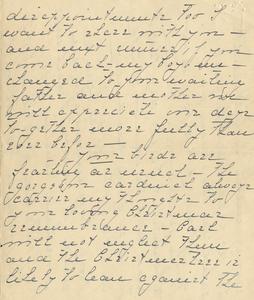 disappointments too I
want to share with you —
and next summer if you
come back — my boy un-
changed to your waiting
father and mother we
will appreciate our days
to-gether more fully than
ever before —
your birds are
feasting as usual — the
gorgeous cardinal always
carries my thoughts to
your loving Christmas
remembrance — Carl
will not neglect them
and the Christmas tree is
likely to lean against the